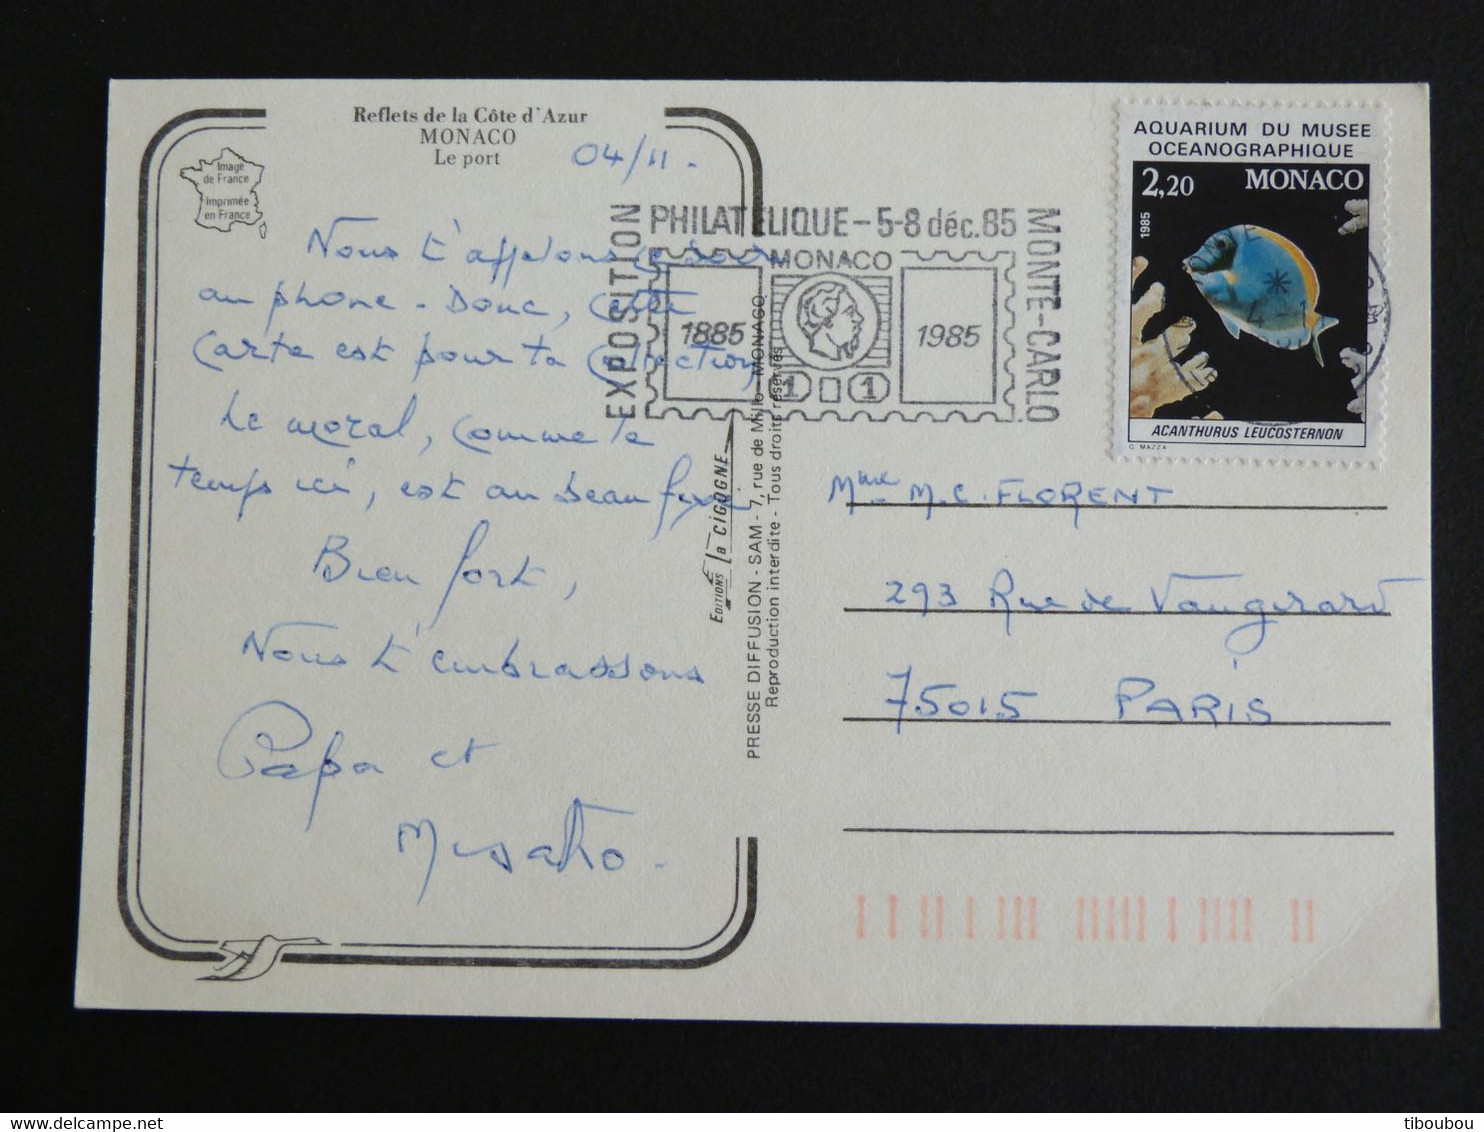 Reflets de la Côte d'Azur
MONACO
Le port
Image
de France
Imprimée
en France
04/11.
Nous t'appelons ce soir
au phone - Donc, cette
Carte est pour ta Collection
Le moral, comme le
temps ici, est au beau fixe
Bien fort,
Nous t'embrassons
Papa et
Misako.
EDITIONS la CIGOGNE
PRESSE DIFFUSION - SAM - 7, rue de Millo - MONACO
Reproduction interdite - Tous droits réservés
EXPOSITION
PHILATELIQUE - 5-8 déc.85
MONTE-CARLO
MONACO
1885
1985
1 1
AQUARIUM DU MUSEE
OCEANOGRAPHIQUE
2,20 MONACO
1985
ACANTHURUS LEUCOSTERNON
C. MAZZA
Mme M.C. FLORENT
293 Rue de Vaugirard
75015 PARIS
tiboubou [delcampe.net]